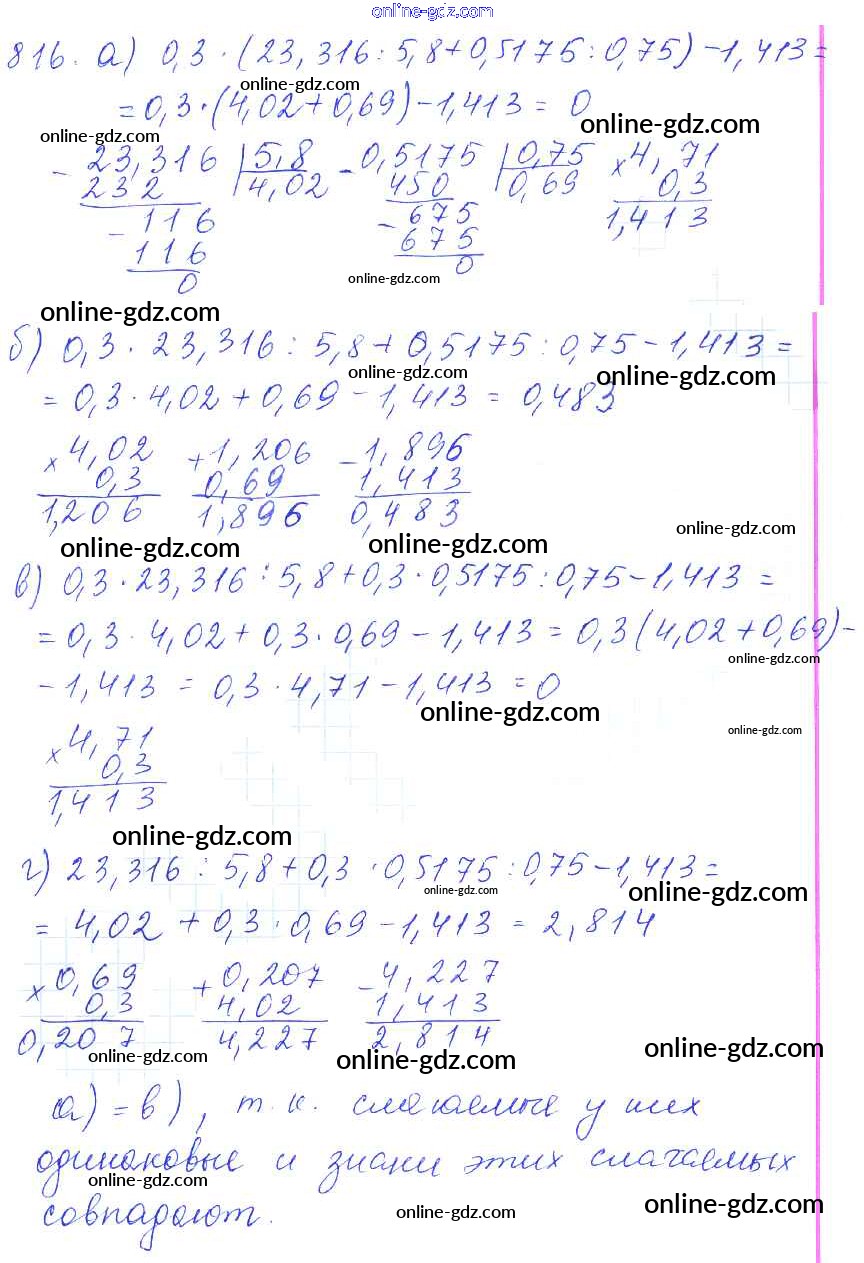 online-gdz.com
816. а) 0,3 · (23,316 : 5,8 + 0,5175 : 0,75) - 1,413 =
online-gdz.com
= 0,3 · (4,02 + 0,69) - 1,413 = 0
online-gdz.com
online-gdz.com
- 23,316 | 5,8 - 0,5175 | 0,75 × 4,71
232 4,02 450 0,69 0,3
- 116 - 675 1,413
116 675
0 0
online-gdz.com
online-gdz.com
б) 0,3 · 23,316 : 5,8 + 0,5175 : 0,75 - 1,413 =
online-gdz.com
online-gdz.com
= 0,3 · 4,02 + 0,69 - 1,413 = 0,483
× 4,02 + 1,206 - 1,896
0,3 0,69 1,413
1,206 1,896 0,483
online-gdz.com
online-gdz.com
online-gdz.com
в) 0,3 · 23,316 : 5,8 + 0,3 · 0,5175 : 0,75 - 1,413 =
= 0,3 · 4,02 + 0,3 · 0,69 - 1,413 = 0,3 (4,02 + 0,69) -
online-gdz.com
- 1,413 = 0,3 · 4,71 - 1,413 = 0
online-gdz.com
online-gdz.com
× 4,71
0,3
1,413
online-gdz.com
г) 23,316 : 5,8 + 0,3 · 0,5175 : 0,75 - 1,413 =
online-gdz.com
online-gdz.com
= 4,02 + 0,3 · 0,69 - 1,413 = 2,814
× 0,69 + 0,207 - 4,227
0,3 4,02 1,413
0,207 4,227 2,814
online-gdz.com
online-gdz.com
online-gdz.com
а) = в), т.к. слагаемые у них
одинаковые и знаки этих слагаемых
online-gdz.com
online-gdz.com
совпадают.
online-gdz.com